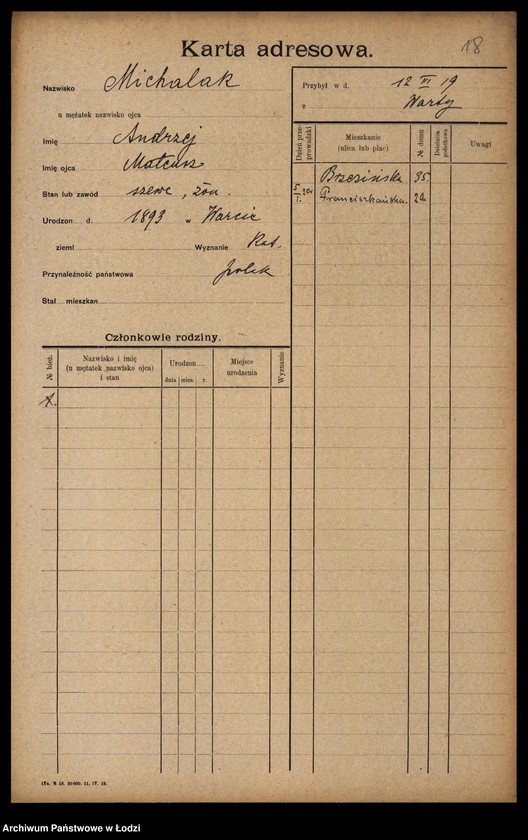 Karta adresowa.
18
Nazwisko Michalak
u mężatek nazwisko ojca
Imię Andrzej
Imię ojca Mateusz
Stan lub zawód szewc, żon.
Urodzon d. 1893 w Warcie
ziemi Wyznanie Kat.
Przynależność państwowa polsk
Stał mieszkan
Przybył w d. 12 VI 19
z Warty
Dzień przeprowadzki
Mieszkanie (ulica lub plac)
№ domu
Dzielnica podatkowa
Uwagi
Brzezińska 95.
5/I. 20r Franciszkańska. 22.
Członkowie rodziny.
№ bież.
Nazwisko i imię
(u mężatek nazwisko ojca)
i stan
Urodzon
dnia mies. r.
Miejsce urodzenia
Wyznanie
1.
Archiwum Państwowe w Łodzi